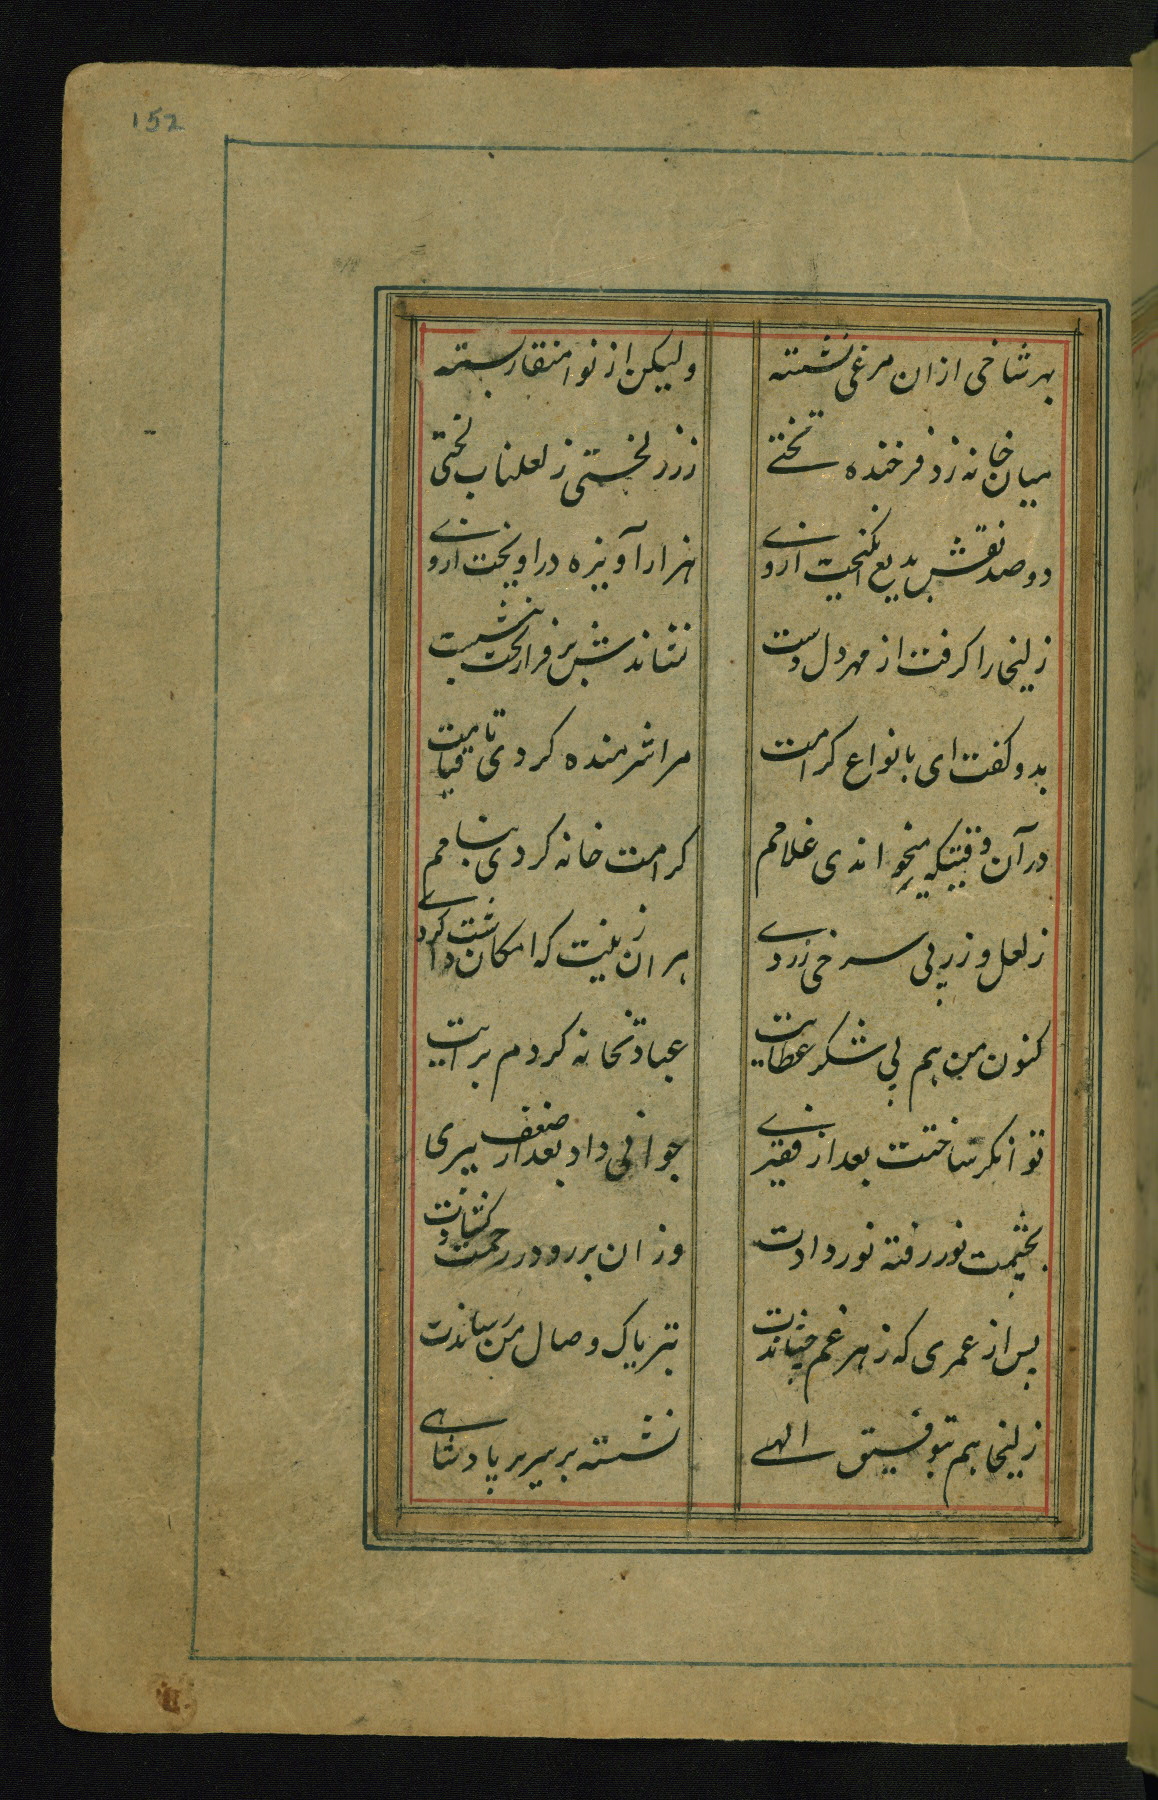 152
بهر شاخی ازان مرغی نشسته
ولیکن از نوا منقار بسته
میان خانه زد فرخنده تختے
ز زر لختی ز لعل ناب لختی
دو صد نقش بدیع انگیخت ازوے
هزار آویزه در آویخت ازوے
زلیخا را گرفت از مهر دل دست
نشاندش بر فراز تخت بنشست
بدو گفت ای بانواع کرامت
مرا شرمنده کردی تا قیامت
در آن وقتیکه میخواندی غلامم
کرامت خانه کردی بنامم
ز لعل و زر پی سرخی زردے
هران زینت که امکان داشت کردے
کنون من هم پی شکر عطایت
عبادتخانه کردم برایت
توانگر ساختت بعد از فقیرے
جوانی داد بعد از ضعف پیری
بچشمت نور رفته نور دادت
وزان بر رو در رحمت کشادت
پس از عمری که زهر غم چشاندت
بتریاک وصال من رساندت
زلیخا هم بتوفیق الهے
نشسته بر سریر پادشاهے